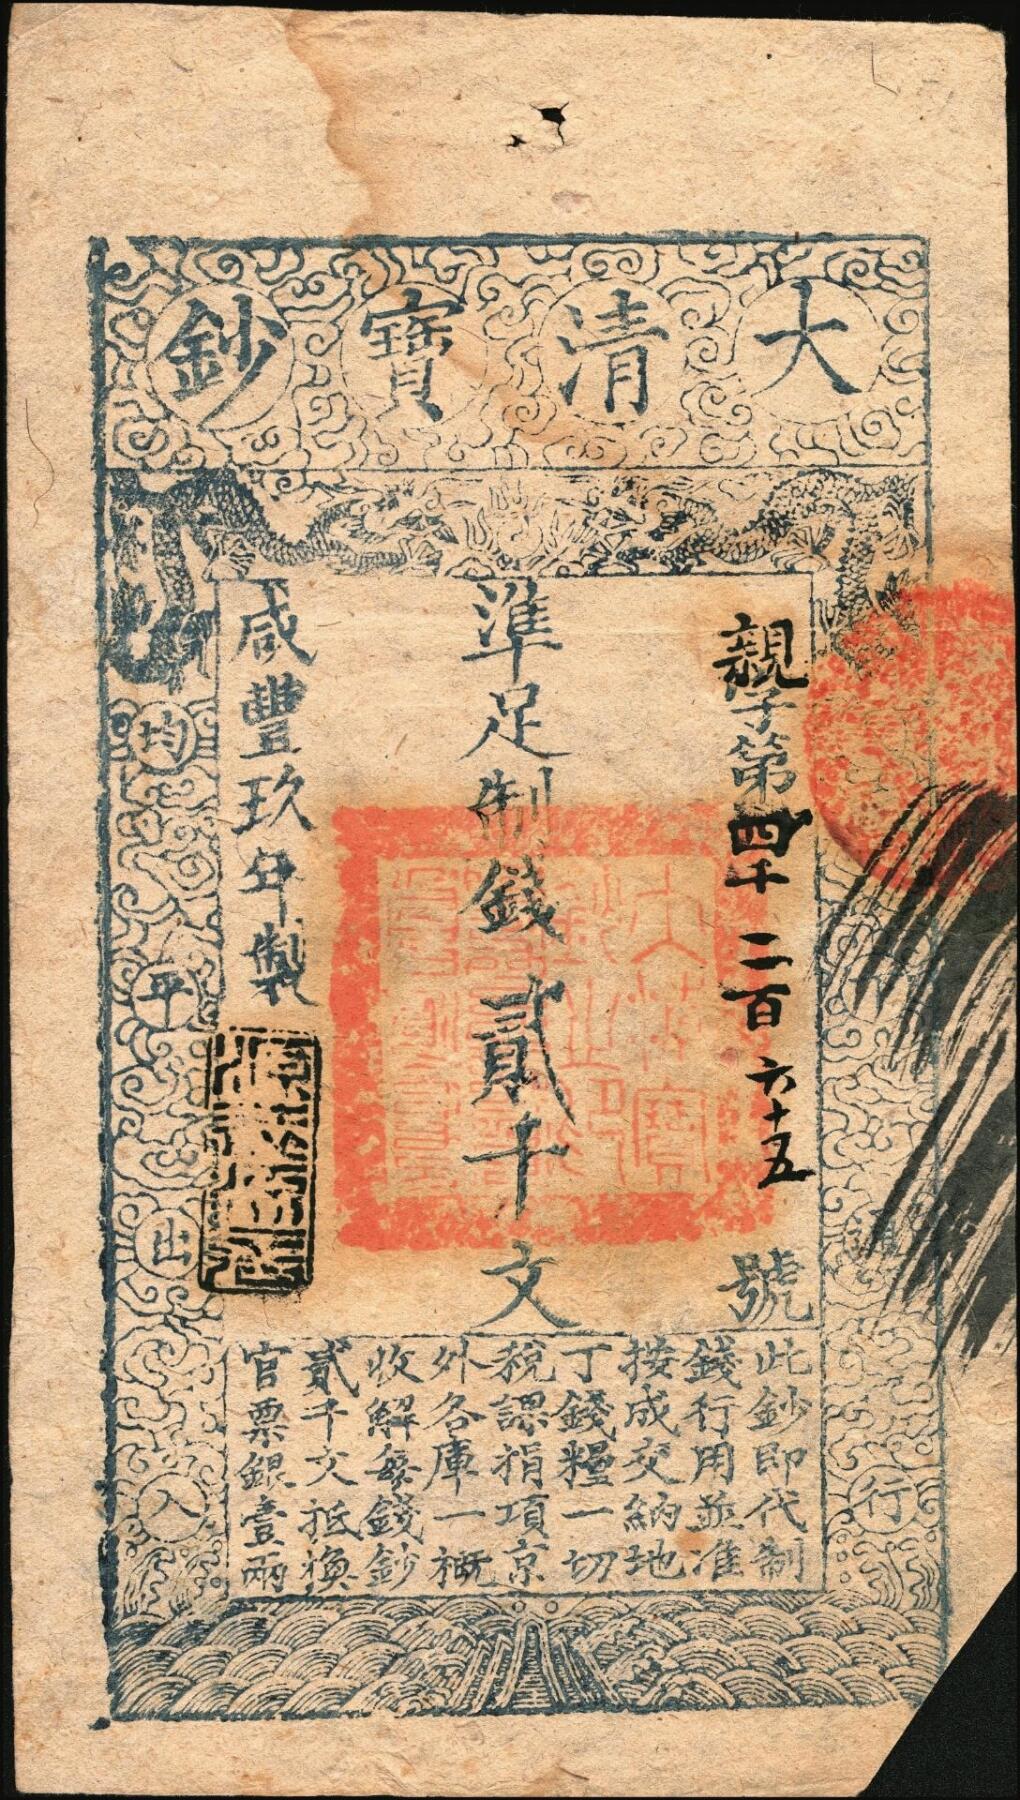 大清寶鈔
親字第四千二百六十五號
準足制錢貳千文
咸豐玖年製
此鈔即代制
錢行用並准
按成交納地
丁錢糧一切
稅課捐項京
外各庫一概
收解每錢鈔
貳千文抵換
官票銀壹兩
行
均平出入